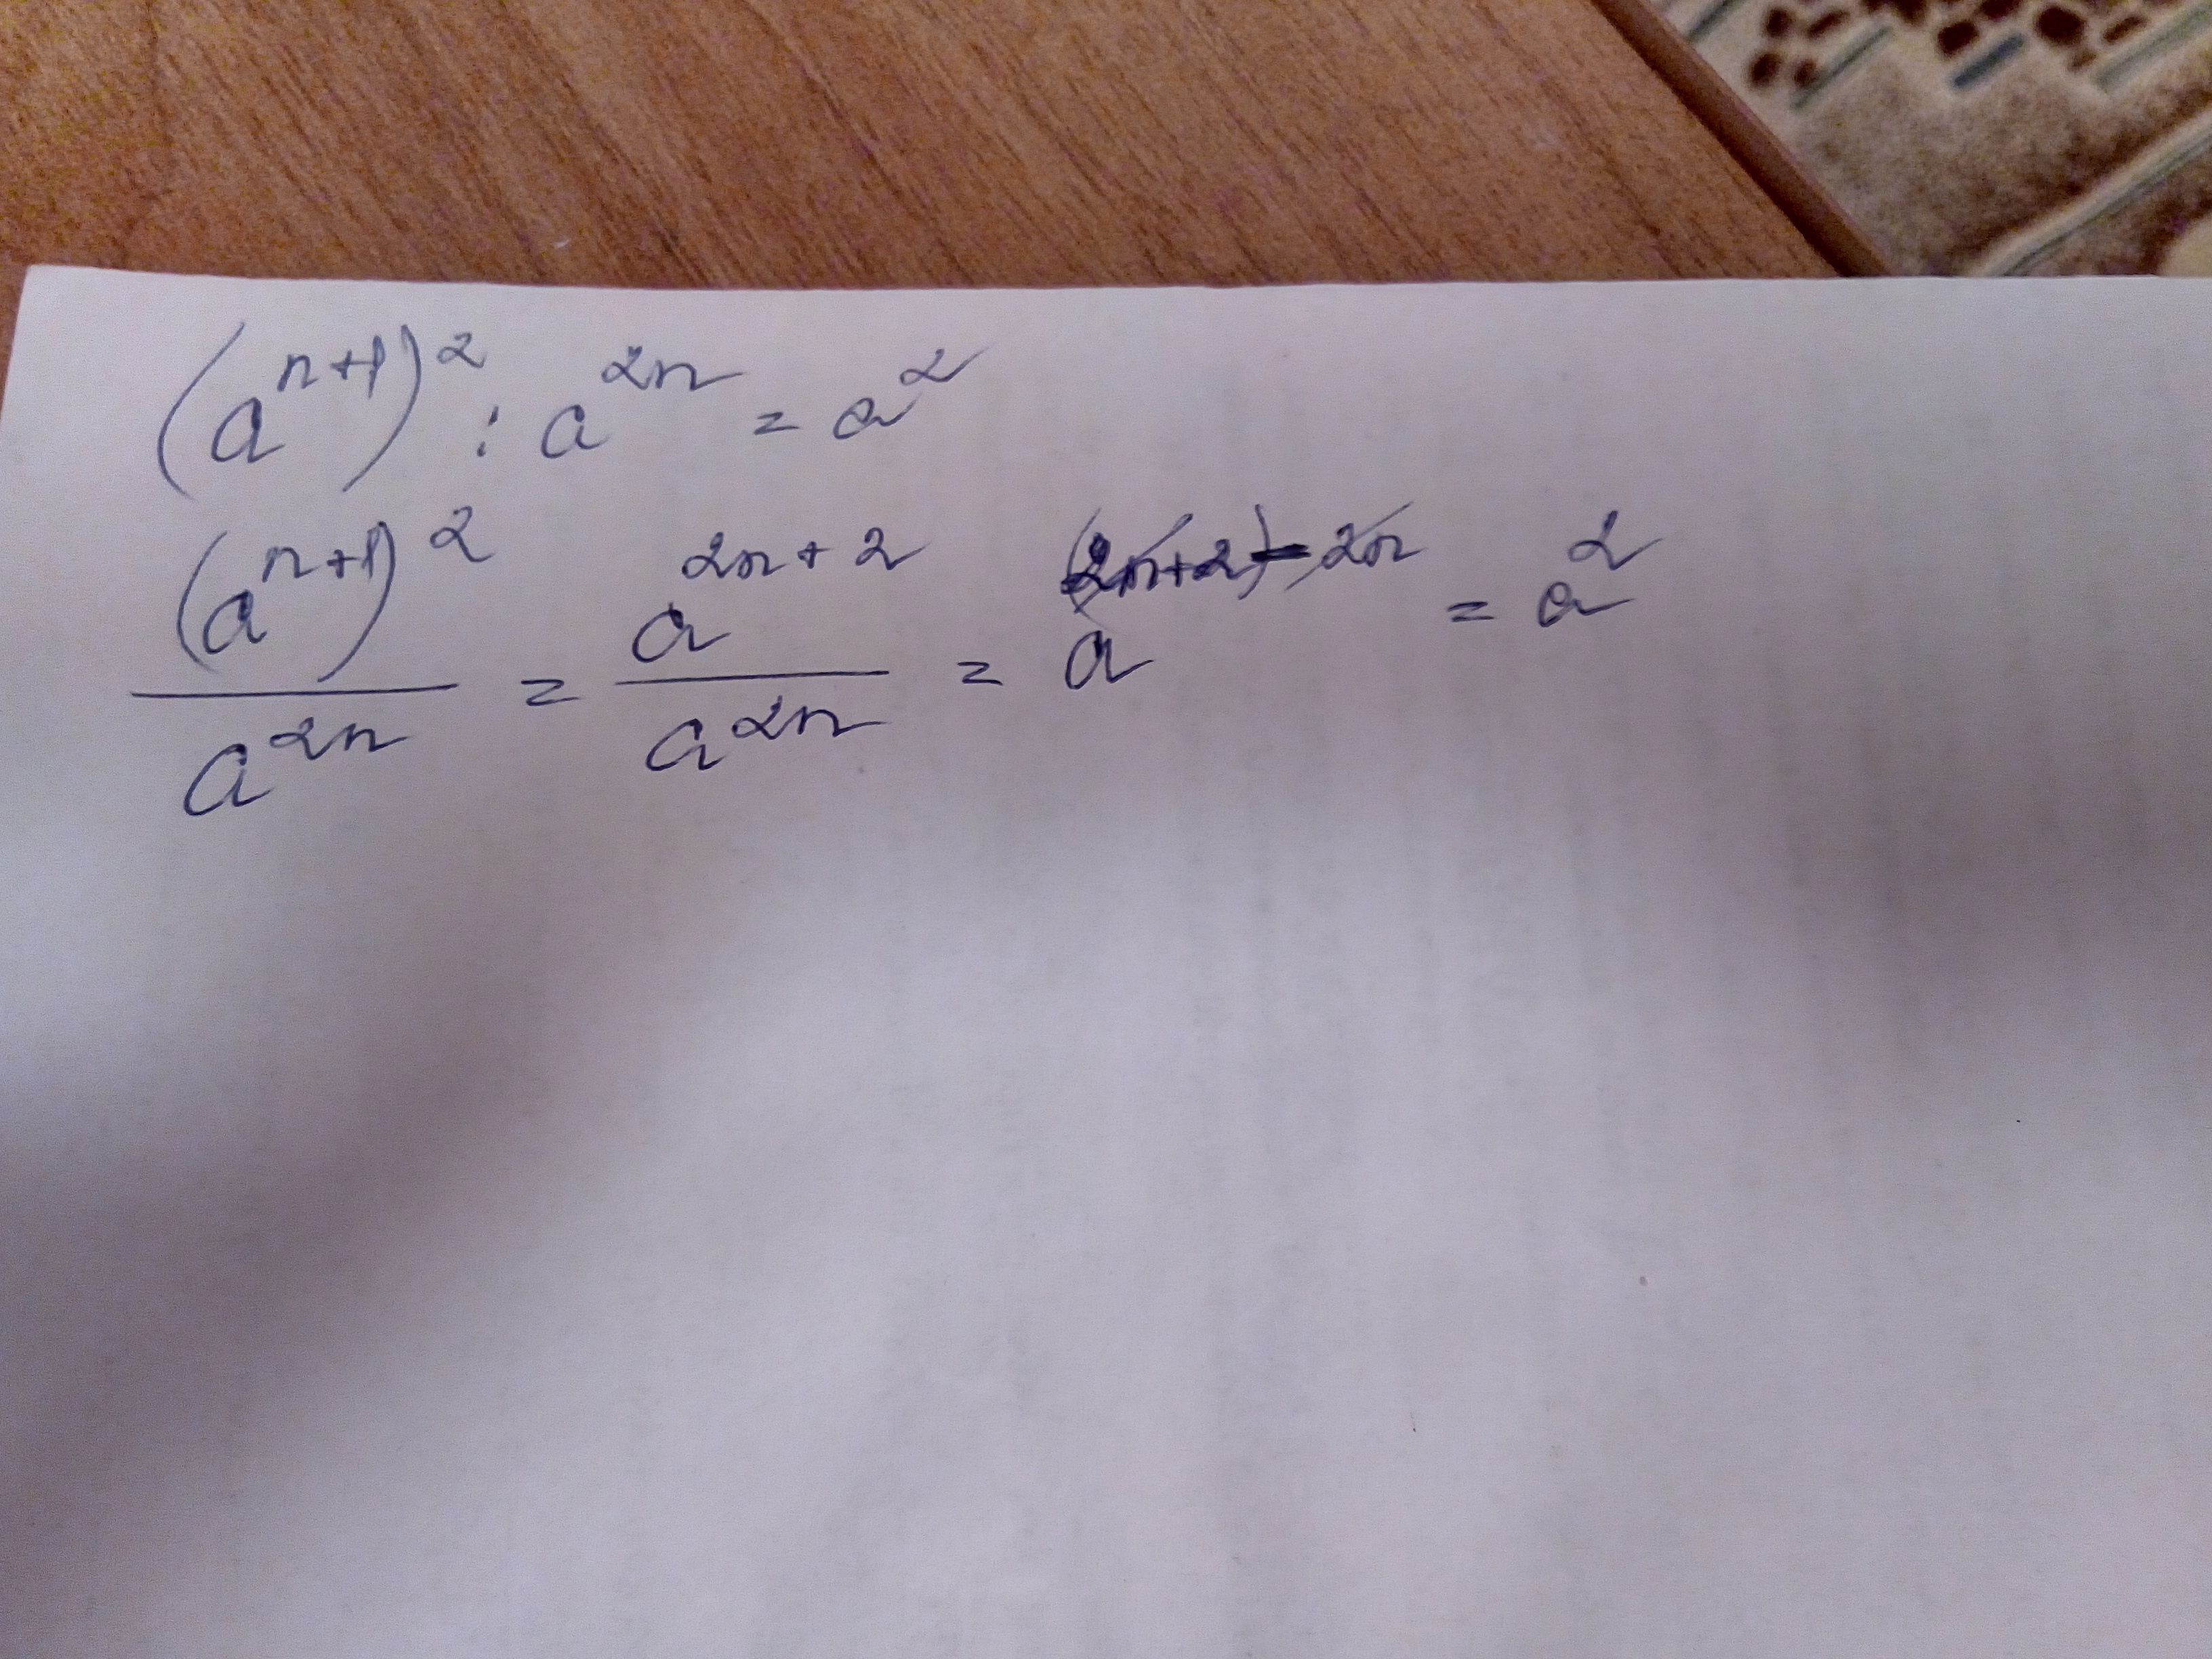 (a^{n+1})^2 : a^{2n} = a^2
\frac{(a^{n+1})^2}{a^{2n}} = \frac{a^{2n+2}}{a^{2n}} = a^{(2n+2)-2n} = a^2